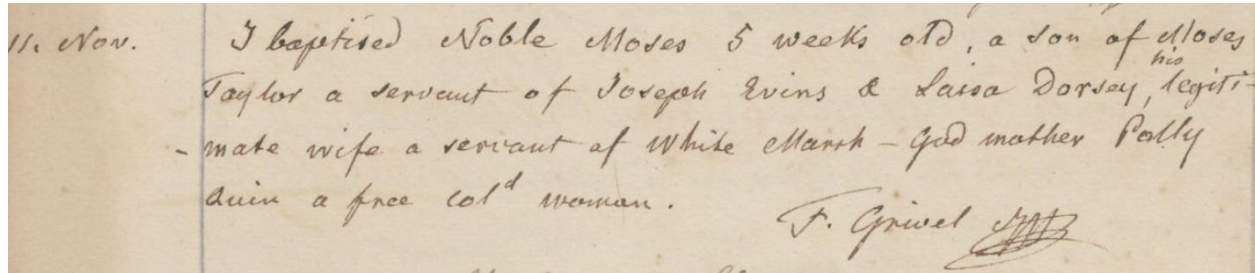 11. Nov. I baptised Noble Moses 5 weeks old, a son of Moses
Taylor a servant of Joseph Evins & Laisa Dorsey, his legiti-
- mate wife a servant of White Marsh - God mother Polly
Quin a free col^d woman.
F. Grivel